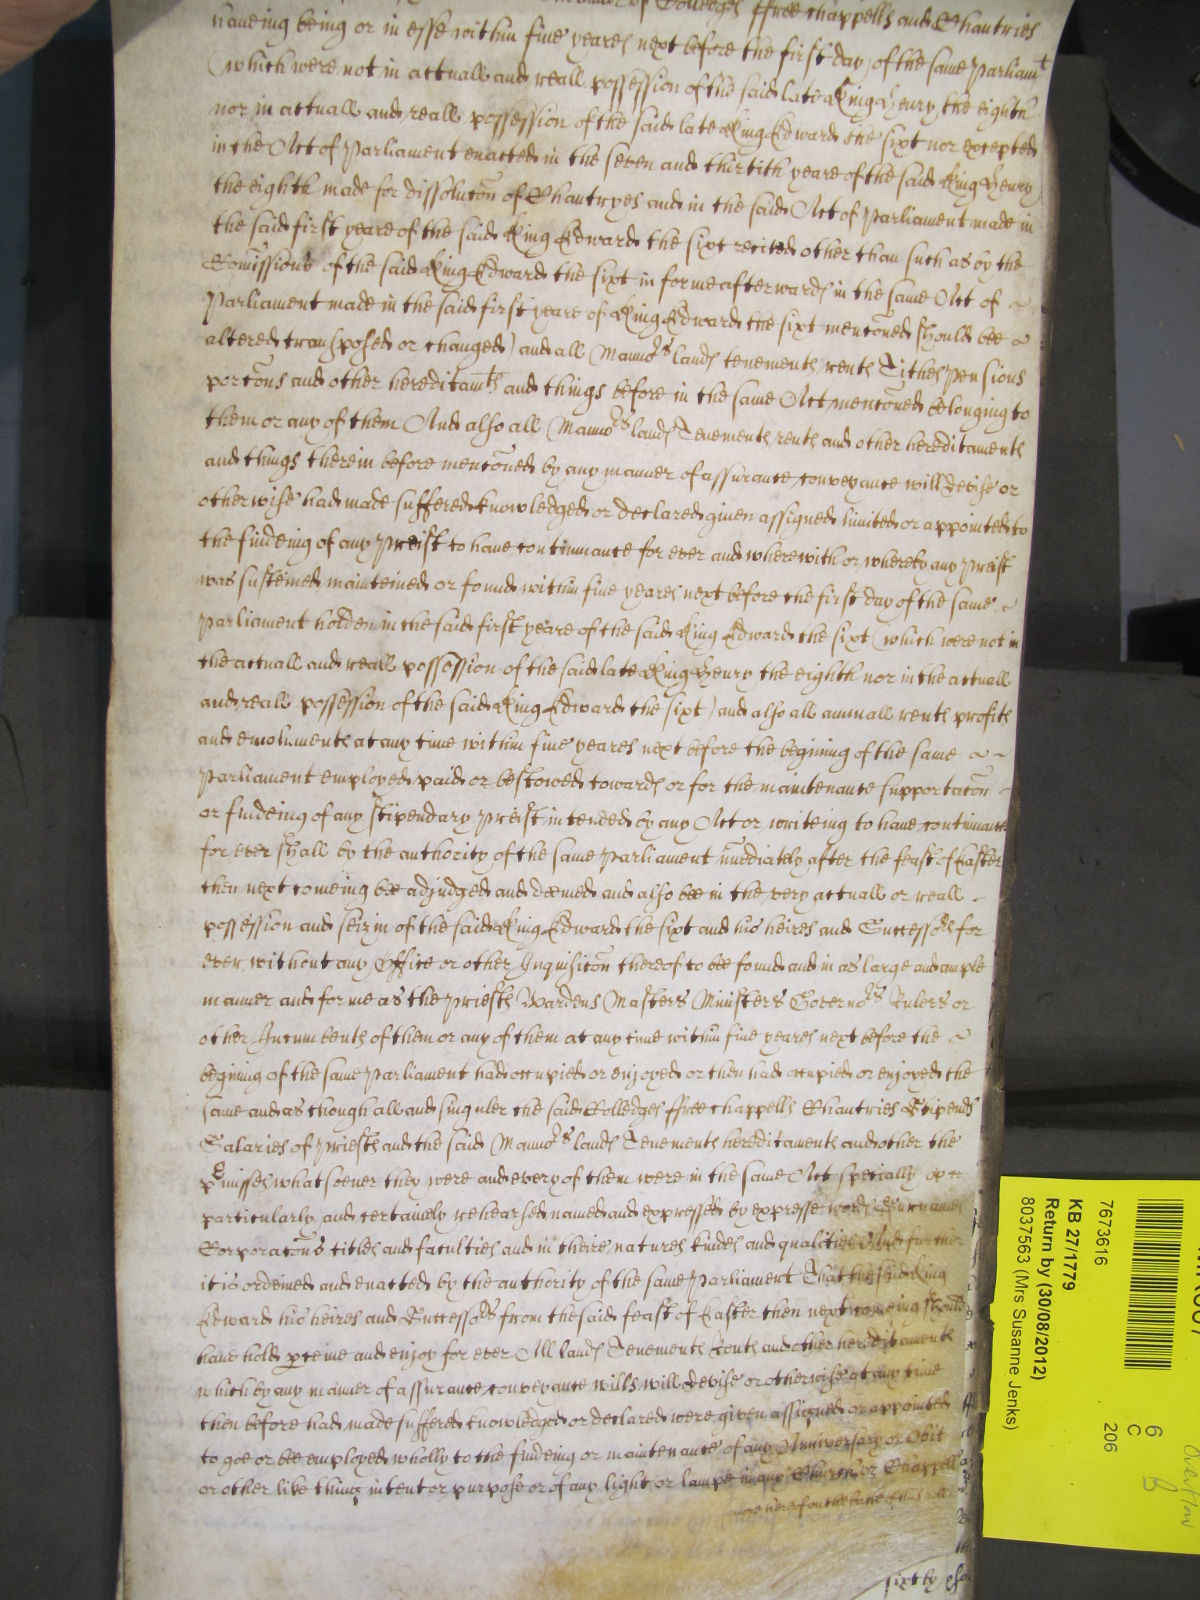 manner of Colledges ffree Chappells and Chantries
haveing being or in esse within five yeares next before the first day of the same Parliamt
(which were not in actuall and reall possession of the said late King Henry the eighth
nor in actuall and reall possession of the said late King Edward the sixt nor excepted
in the Act of Parliament enacted in the seven and thirtith yeare of the said King Henry
the eighth made for dissolucon of Chantryes and in the said Act of Parliament made in
the said first yeare of the said King Edward the sixt recited other than such as by the
Comissions of the said King Edward the sixt in forme afterwards in the same Act of
Parliament made in the said first yeare of King Edward the sixt menconed should bee
altered transposed or changed) and all Mannors lands tenements rents Tithes Pensions
porcons and other hereditamts and things before in the same Act menconed belonging to
them or any of them And also all Mannors lands Tenements rents and other hereditaments
and things therein before menconed by any manner of assurance conveyance will devise or
otherwise had made suffered knowledged or declared given assigned limited or appointed to
the findeing of any Preist to have continuance for ever and wherewith or whereby any Preist
was susteined mainteined or found within five yeares next before the first day of the same
Parliament holden in the said first yeare of the said King Edward the sixt (which were not in
the actuall and reall possession of the said late King Henry the eighth nor in the actuall
and reall possession of the said King Edward the sixt) and also all annuall rents profits
and emoluments at any time within five yeares next before the begining of the same
Parliament employed paid or bestowed towards or for the maintenance supportacon
or findeing of any stipendary Preist intended by any Act or writeing to have continuance
for ever shall by the authority of the same Parliament imediately after the feast of Easter
then next comeing bee adjudged and deemed and also bee in the very actuall or reall
possession and seizin of the said King Edward the sixt and his heires and Successors for
ever without any Office or other Inquisicon thereof to bee found and in as large and ample
manner and forme as the Preists Wardens Masters Ministers Governors Rulers or
other Incumbents of them or any of them at any time within five yeares next before the
begining of the same Parliament had occupied or enjoyed or then had occupied or enjoyed the
same and as though all and singuler the said Colledges ffree Chappells Chantries Stipends
Salaries of Preists and the said Mannors lands Tenements hereditaments and other the
pmisses whatsoever they were and every of them were in the same Act specially
particularly and certainely rehearsed named and expressed by expresse words Surnames
Corporacons titles and faculties and in theire natures kindes and qualities And further
it is ordeined and enacted by the authority of the same Parliament That the said King
Edward his heires and Successors from the said feast of Easter then next comeing should
have hold pceive and enjoy for ever All lands Tenements Rents and other hereditaments
which by any manner of assurance conveyance wills will devise or otherwise at any time
then before had made suffered knowledged or declared were given assigned or appointed
to goe or bee employed wholly to the findeing or maintenance of any Anniversary or Obit
or other like thing intent or purpose or of any light or lampe in any Church or Chappell
more hereof on the backe of this roll
sixt by
7673616
KB 27/1779
Return by (30/08/2012)
8037563 (Mrs Susanne Jenks)
6
C
206
Overflow